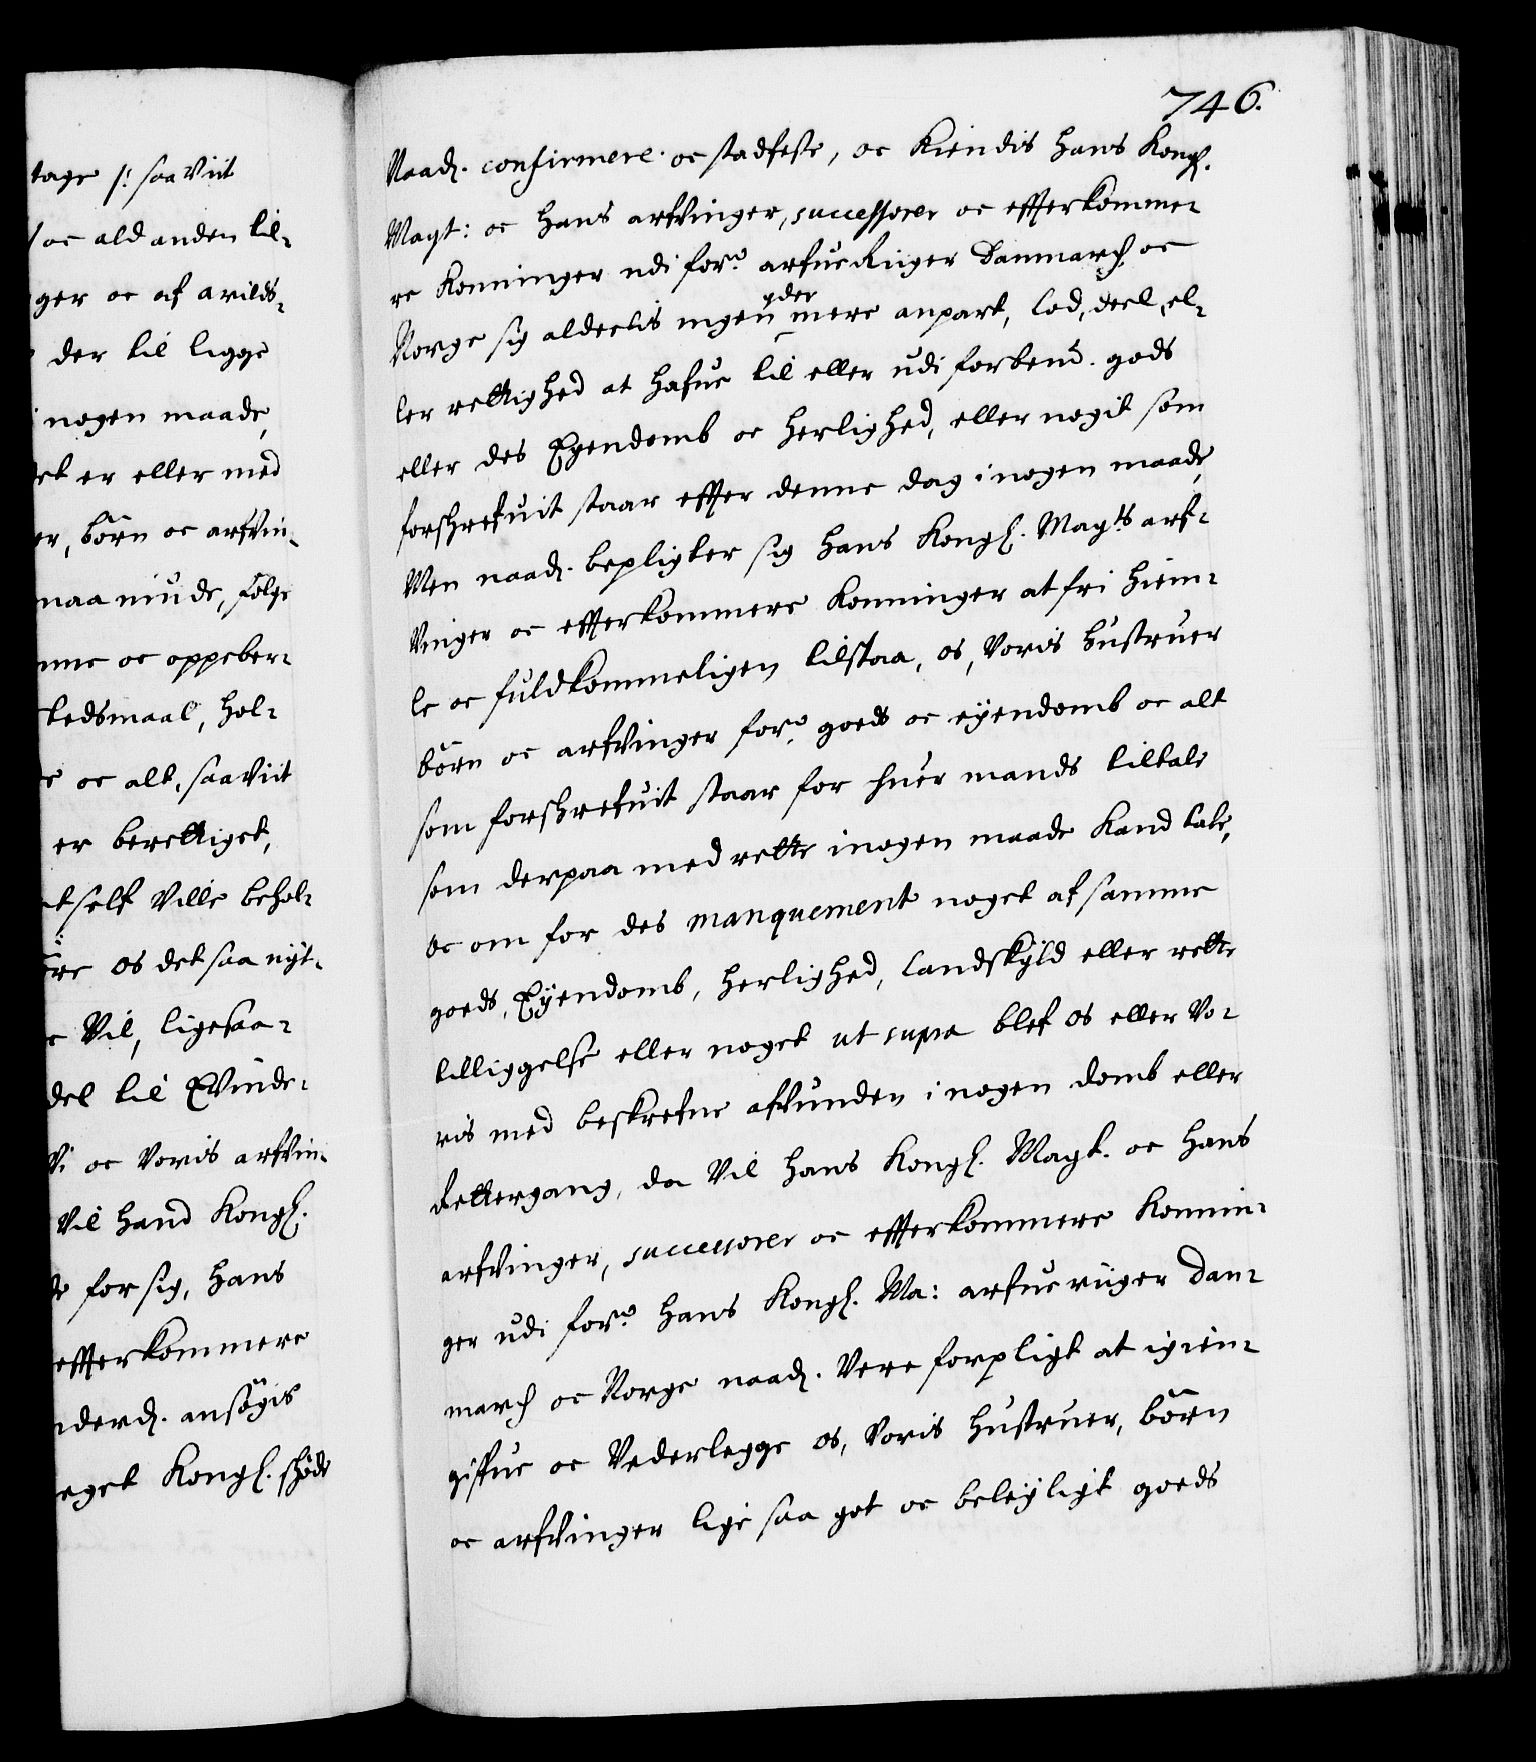 tage /: saa viit
/ oc ald anden til-
ger oc af arilds-
der til ligge
nogen maade,
et er eller med
er, börn oc arfvin-
maa niude, følge
nne oc oppeber-
kedsmaal, hol-
e oc alt, saaviit
er berettiget,
t self ville behol-
re os det saa nyt-
e vil, ligesaa-
del til Evinde-
vi oc voris arfvin-
vil hand Kongl.
de for sig, hans
efferkommere
nderd. ansøgis
eget Kongl. skiøde
746.
Naad. confirmere oc stadfeste, oc Kiendis hans Kongl.
Magt: oc hans arfvinger, successorer oc efferkomme-
re Konninger udi for.ne arfue Riiger Danmarch oc
Norge sig aldeelis ingen yder mere anpart, lod, deel, el-
ler rettighed at hafue til eller udi forben.te gods
eller des Eyendomb oc herlighed, eller nogit som
forschrefuit staar effter denne dag i nogen maade,
Men naad. bepligter sig hans Kongl. Mag.ts arf-
vinger oc efferkommere Konninger at fri hiem-
le oc fuldkommeligen tilstaa, os, voris hustruer
börn oc arfvinger for.ne goeds oc eyendomb oc alt
som forschrefuit staar for huer mands tiltale
som derpaa med rette i nogen maade Kand tale,
Oc om for des manquement noget af samme
goeds, Eyendomb, herlighed, landskyld eller rette
tilliggelse eller noget ut supra blef os eller vo-
ris med beskrefne afvunden i nogen domb eller
Rettergang, da vil hans Kongl. Magt. oc hans
arfvinger, successorer oc efferkommere Konnin-
ger udi for.ne hans Kongl. Ma: arfue riiger Dan-
march oc Norge naad. vere forpligt at igien-
gifue oc vederlegge os, voris hustruer, börn
oc arfvinger lige saa got oc beleyligt goeds